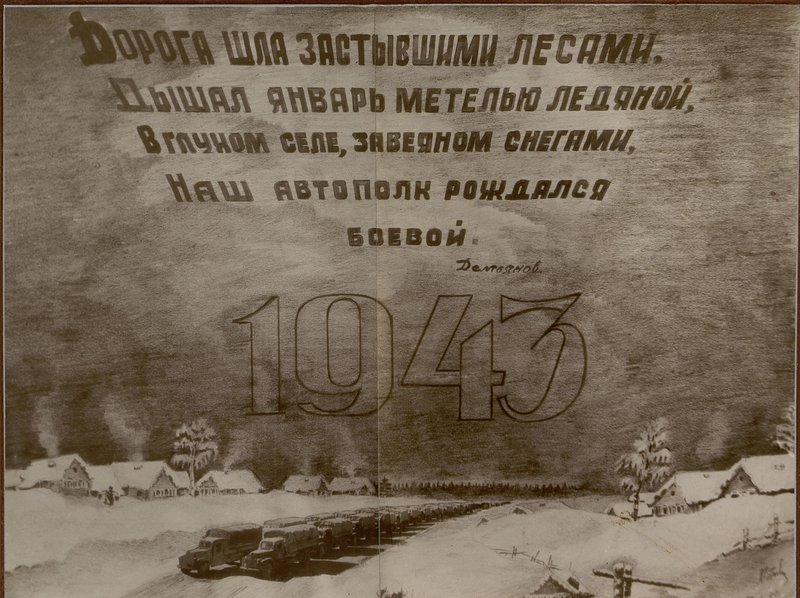 Дорога шла застывшими лесами.
Дышал январь метелью ледяной,
В глухом селе, завеяном снегами,
Наш автополк рождался
боевой.
1943